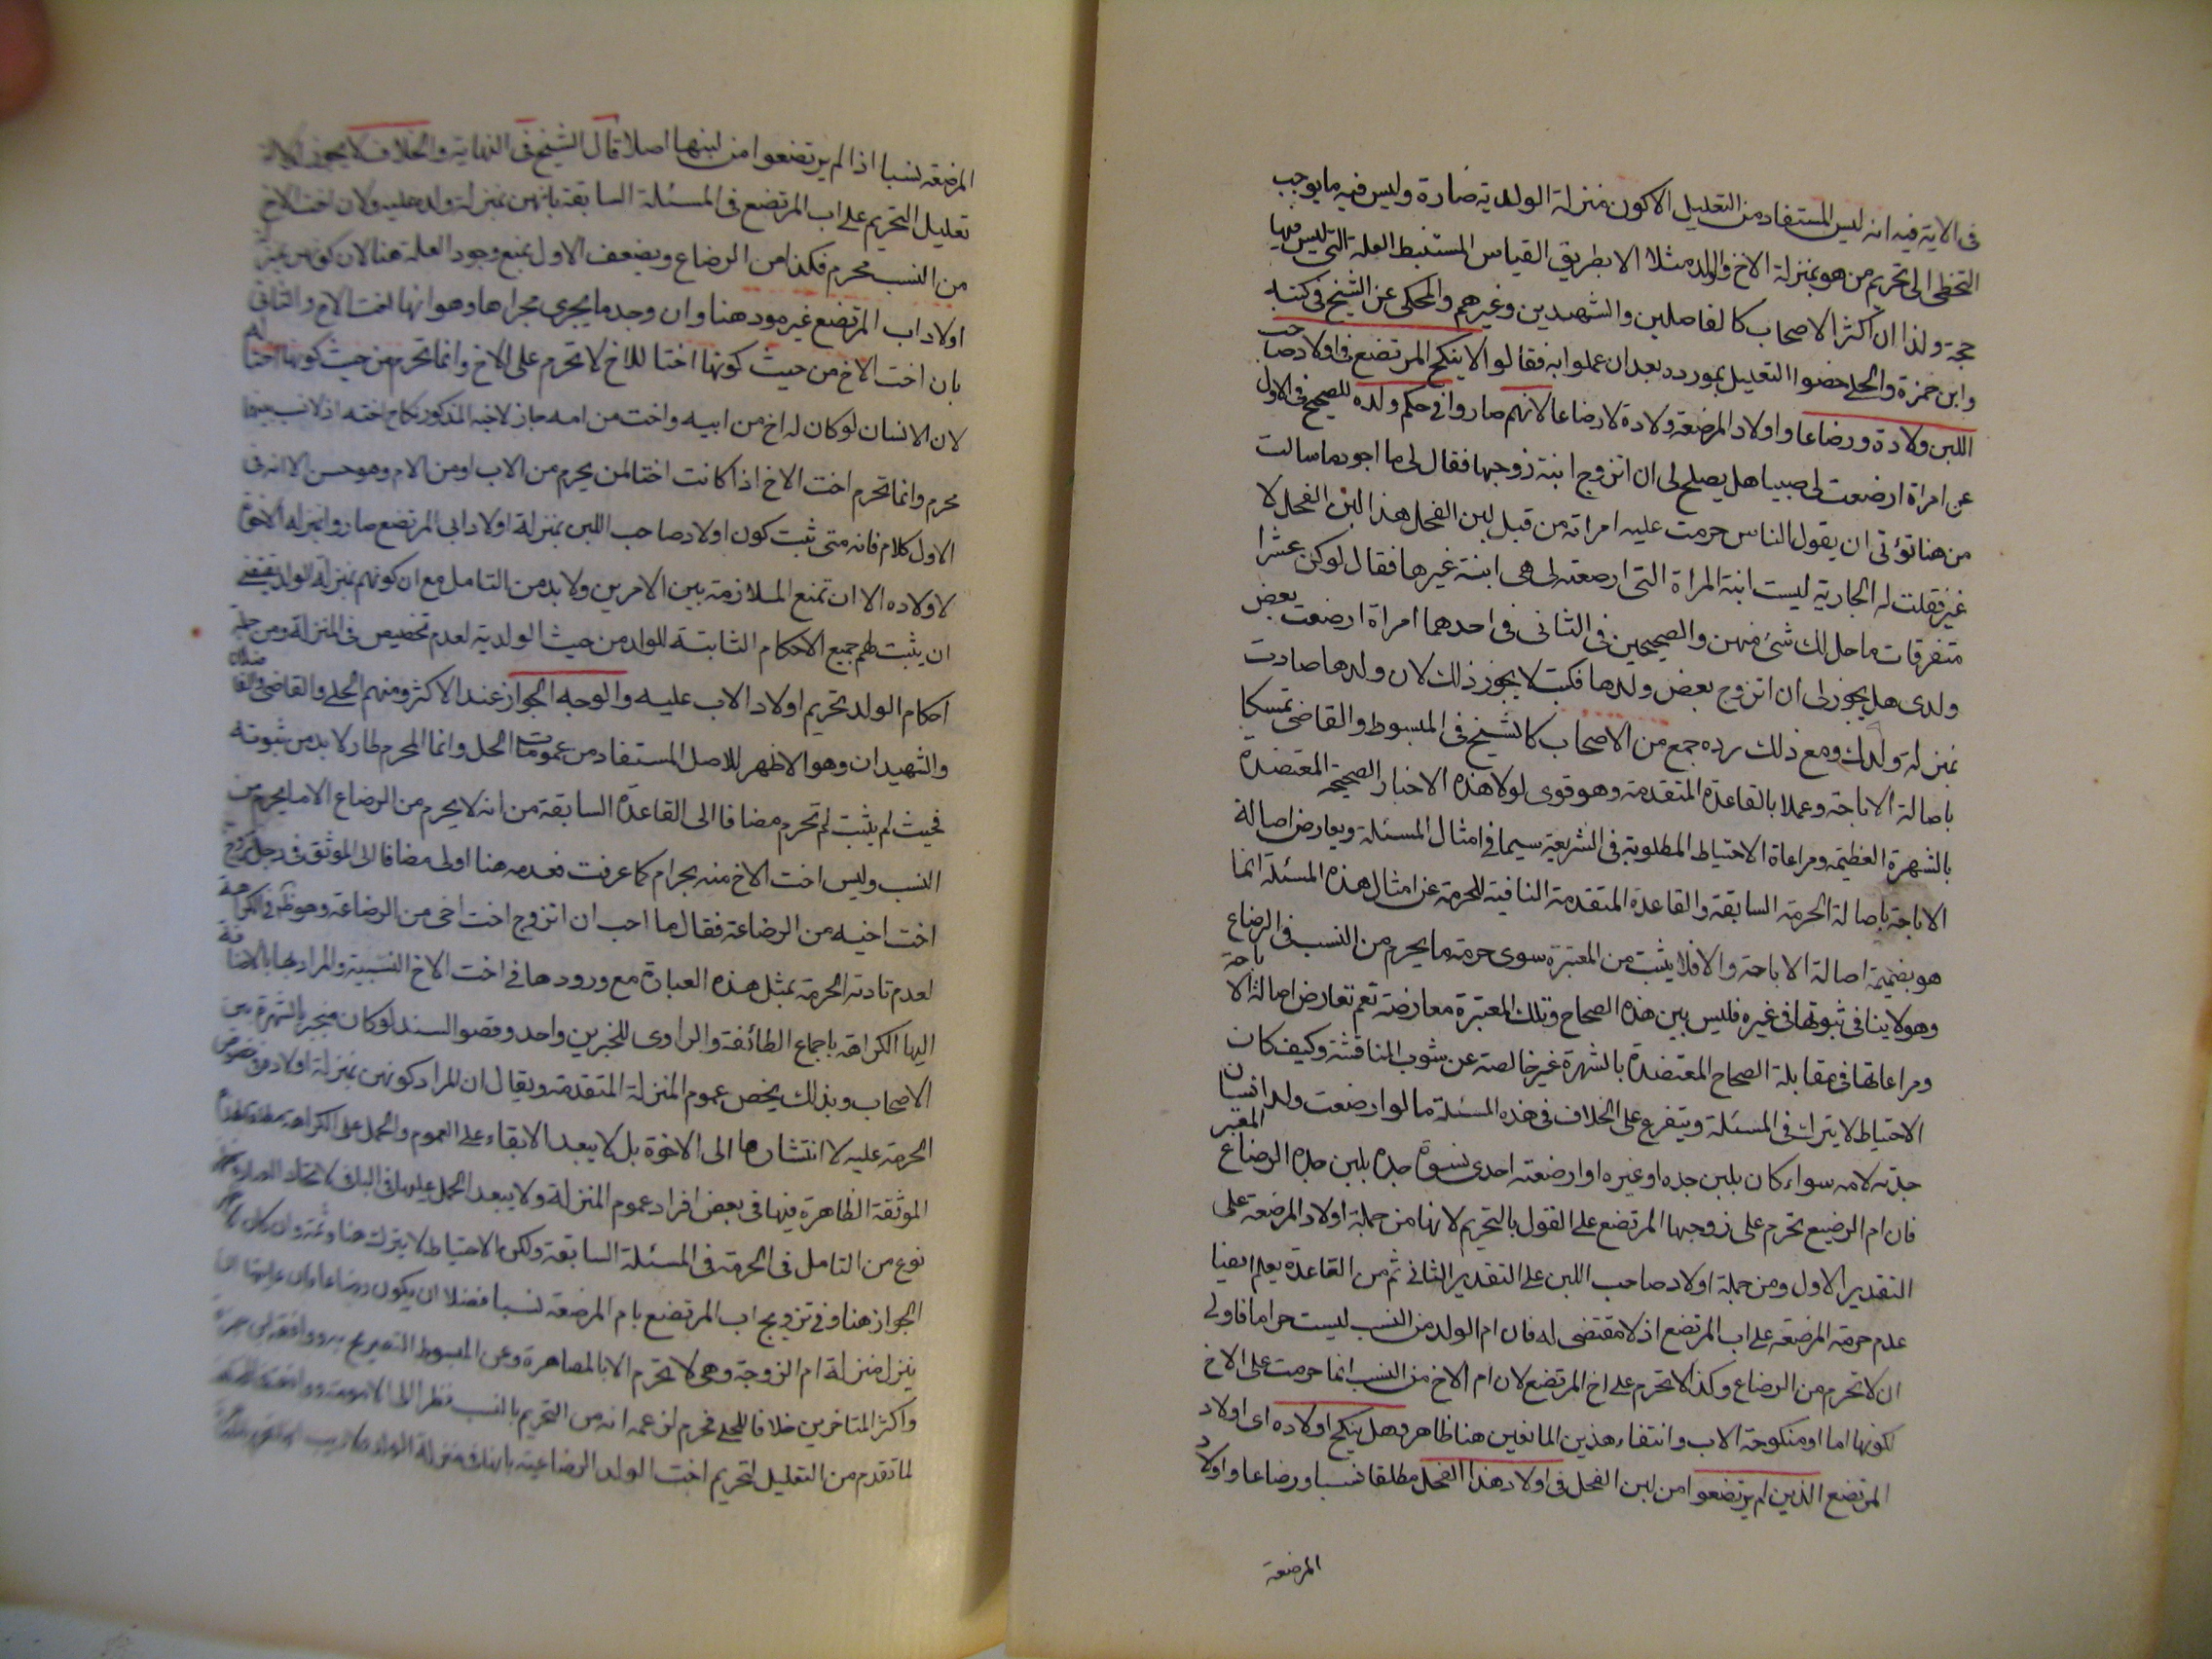 فى الاية فيه انه ليس المستفاد من التعليل الا كون منزلة الولدية ضارة وليس فيه ما يوجب
التخطى الى تحريم من هو بمنزلة الاخ والولد مثلا الا بطريق القياس المستنبط العلة التى ليس فيها
حجة ولذا ان اكثر الاصحاب كالفاضلين والشهيدين وغيرهم والمحكى عن الشيخ فى كتبه
وابن حمزة والحلى خصوا التعليل بمورده بعد ان عملوا به فقالوا لا ينكح المرتضع فى اولاد صاحب
اللبن ولادة ورضاعا واولاد المرضعة ولادة لا رضاعا لانهم صاروا فى حكم ولده للصحيح فى الاول
عن امراة ارضعت لى صبيا هل يصلح لى ان اتزوج ابنة زوجها فقال لى ما اجود ما سالت
من هنا تؤتى ان يقول الناس حرمت عليه امراته من قبل لبن الفحل هذا لبن الفحل لا
غير فقلت له الجارية ليست ابنة المراة التى ارضعته لى هى ابنة غيرها فقال لو كن عشرا
متفرقات ما حل لك شئ منهن والصحيحين فى الثانى فى احدهما امراة ارضعت بعض
ولدى هل يجوز لى ان اتزوج بعض ولدها فكتب لا يجوز ذلك لان ولدها صارت
بمنزلة ولدك ومع ذلك رده جمع من الاصحاب كالشيخ فى المبسوط والقاضى تمسكا
باصالة الاباحة وعملا بالقاعدة المتقدمة وهو قوى لولا هذه الاخبار الصحيحة المعتضدة
بالشهرة العظيمة ومراعاة الاحتياط المطلوبة فى الشريعة سيما فى امثال المسئلة ويعارض اصالة
الاباحة باصالة الحرمة السابقة والقاعدة المتقدمة النافية للحرمة عن امثال هذه المسئلة انما
هو بضميمة اصالة الاباحة والا فلا يثبت من المعتبرة سوى حرمة ما يحرم من النسب فى الرضاع
وهو لا ينافى ثبوتها فى غيره فليس بين هذه الصحاح وتلك المعتبرة معارضة نعم تعارض اصالة الاباحة
ومراعاتها فى مقابلة الصحاح المعتضدة بالشهرة غير خالصة عن شوب المناقشة وكيف كان
الاحتياط لا يترك فى المسئلة ويتفرع على الخلاف فى هذه المسئلة ما لو ارضعت ولد انسان
جدته لامه سواء كان بلبن جده او غيره او ارضعته احدى نسوة جده بلبن جده الرضاع المعتبر
فان ام الرضيع تحرم على زوجها المرتضع على القول بالتحريم لانها من جملة اولاد المرضعة على
التقدير الاول ومن جملة اولاد صاحب اللبن على التقدير الثانى ثم من القاعدة يعلم ايضا
عدم حرمة المرضعة على اب المرتضع اذ لا مقتضى له فان ام الولد من النسب ليست حراما فاولى
ان لا تحرم من الرضاع وكذا لا تحرم على اخ المرتضع لان ام الاخ من النسب انما حرمت على الاخ
لكونها اما او منكوحة الاب وانتفاء هذين المانعين هنا ظاهر وهل ينكح اولاده اى اولاد
المرتضع الذين لم يرتضعوا من لبن الفحل فى اولاد هذا الفحل مطلقا نسبا ورضاعا واولاد
المرضعة
المرضعة نسبا اذا لم يرتضعوا من لبنها اصلا قال الشيخ فى النهاية والخلاف لا يجوز
تعليل التحريم على اب المرتضع فى المسئلة السابقة بانهن بمنزلة ولده عليه ولان اخت الاخ
من النسب محرم فكذا من الرضاع ويضعف الاول بمنع وجود العلة هنا لان كونهن بمنزلة
اولاد اب المرتضع غير موجود هنا وان وجد ما يجرى مجراها وهو انها اخت الاخ والثانى
بان اخت الاخ من حيث كونها اختا للاخ لا تحرم على الاخ وانما تحرم من حيث كونها اختا له
لان الانسان لو كان له اخ من ابيه واخت من امه جاز لاخيه المذكور نكاح اخته اذ لا نسب بينهما
محرم وانما تحرم اخت الاخ اذا كانت اختا لمن يحرم من الاب او من الام وهو حسن الا انه فى
الاول كلام فانه متى ثبت كون اولاد صاحب اللبن بمنزلة اولاد ابى المرتضع صاروا بمنزلة الاخوة
لاولاده الا ان تمنع الملازمة بين الامرين ولا بد من التامل مع ان كونهم بمنزلة الولد يقتضى
ان يثبت لهم جميع الاحكام الثابتة للولد من حيث الولدية لعدم تخصيص فى المنزلة ومن جملة
احكام الولد تحريم اولاد الاب عليه والوجه الجواز عند الاكثر ومنهم الحلى والقاضى والفاضلان
والشهيدان وهو الاظهر للاصل المستفاد من عمومات الحل وانما المحرم طار لا بد من ثبوته
فحيث لم يثبت لم تحرم مضافا الى القاعدة السابقة من انه لا يحرم من الرضاع الا ما يحرم من
النسب وليس اخت الاخ منه بحرام كما عرفت فعدمه هنا اولى مضافا الى الموثق فى رجل تزوج
اخت اخيه من الرضاعة فقال ما احب ان اتزوج اخت اخى من الرضاعة وهو ظاهر فى الكراهة
لعدم تادية الحرمة بمثل هذه العبارة مع ورودها فى اخت الاخ النسبية والمراد بها بالاضافة
اليها الكراهة باجماع الطائفة والراوى للخبرين واحد وقصور السند لو كان منجبر بالشهرة بين
الاصحاب وبذلك يخص عموم المنزلة المتقدمة ويقال ان المراد كونهن بمنزلة اولاده فى خصوص
الحرمة عليه لا انتشارها الى الاخوة بل لا يبعد الابقاء على العموم والحمل على الكراهة
الموثقة الظاهرة فيها فى بعض افراد عموم المنزلة ولا يبعد الحمل عليها فى الباقى
نوع من التامل فى الحرمة فى المسئلة السابقة ولكن الاحتياط لا يترك هنا وثمة وان كان
الجواز هنا وفى تزويج اب المرتضع بام المرضعة نسبا فضلا ان يكون رضاعا
ينزل منزلة ام الزوجة وهى لا تحرم الا بالمصاهرة وعن المبسوط التصريح به
واكثر المتاخرين خلافا للحلى فحرم لزعمه انه من التحريم بالنسب نظرا الى الامومة
لما تقدم من التعليل لتحريم اخت الولد الرضاعية بانها فى منزلة الولد